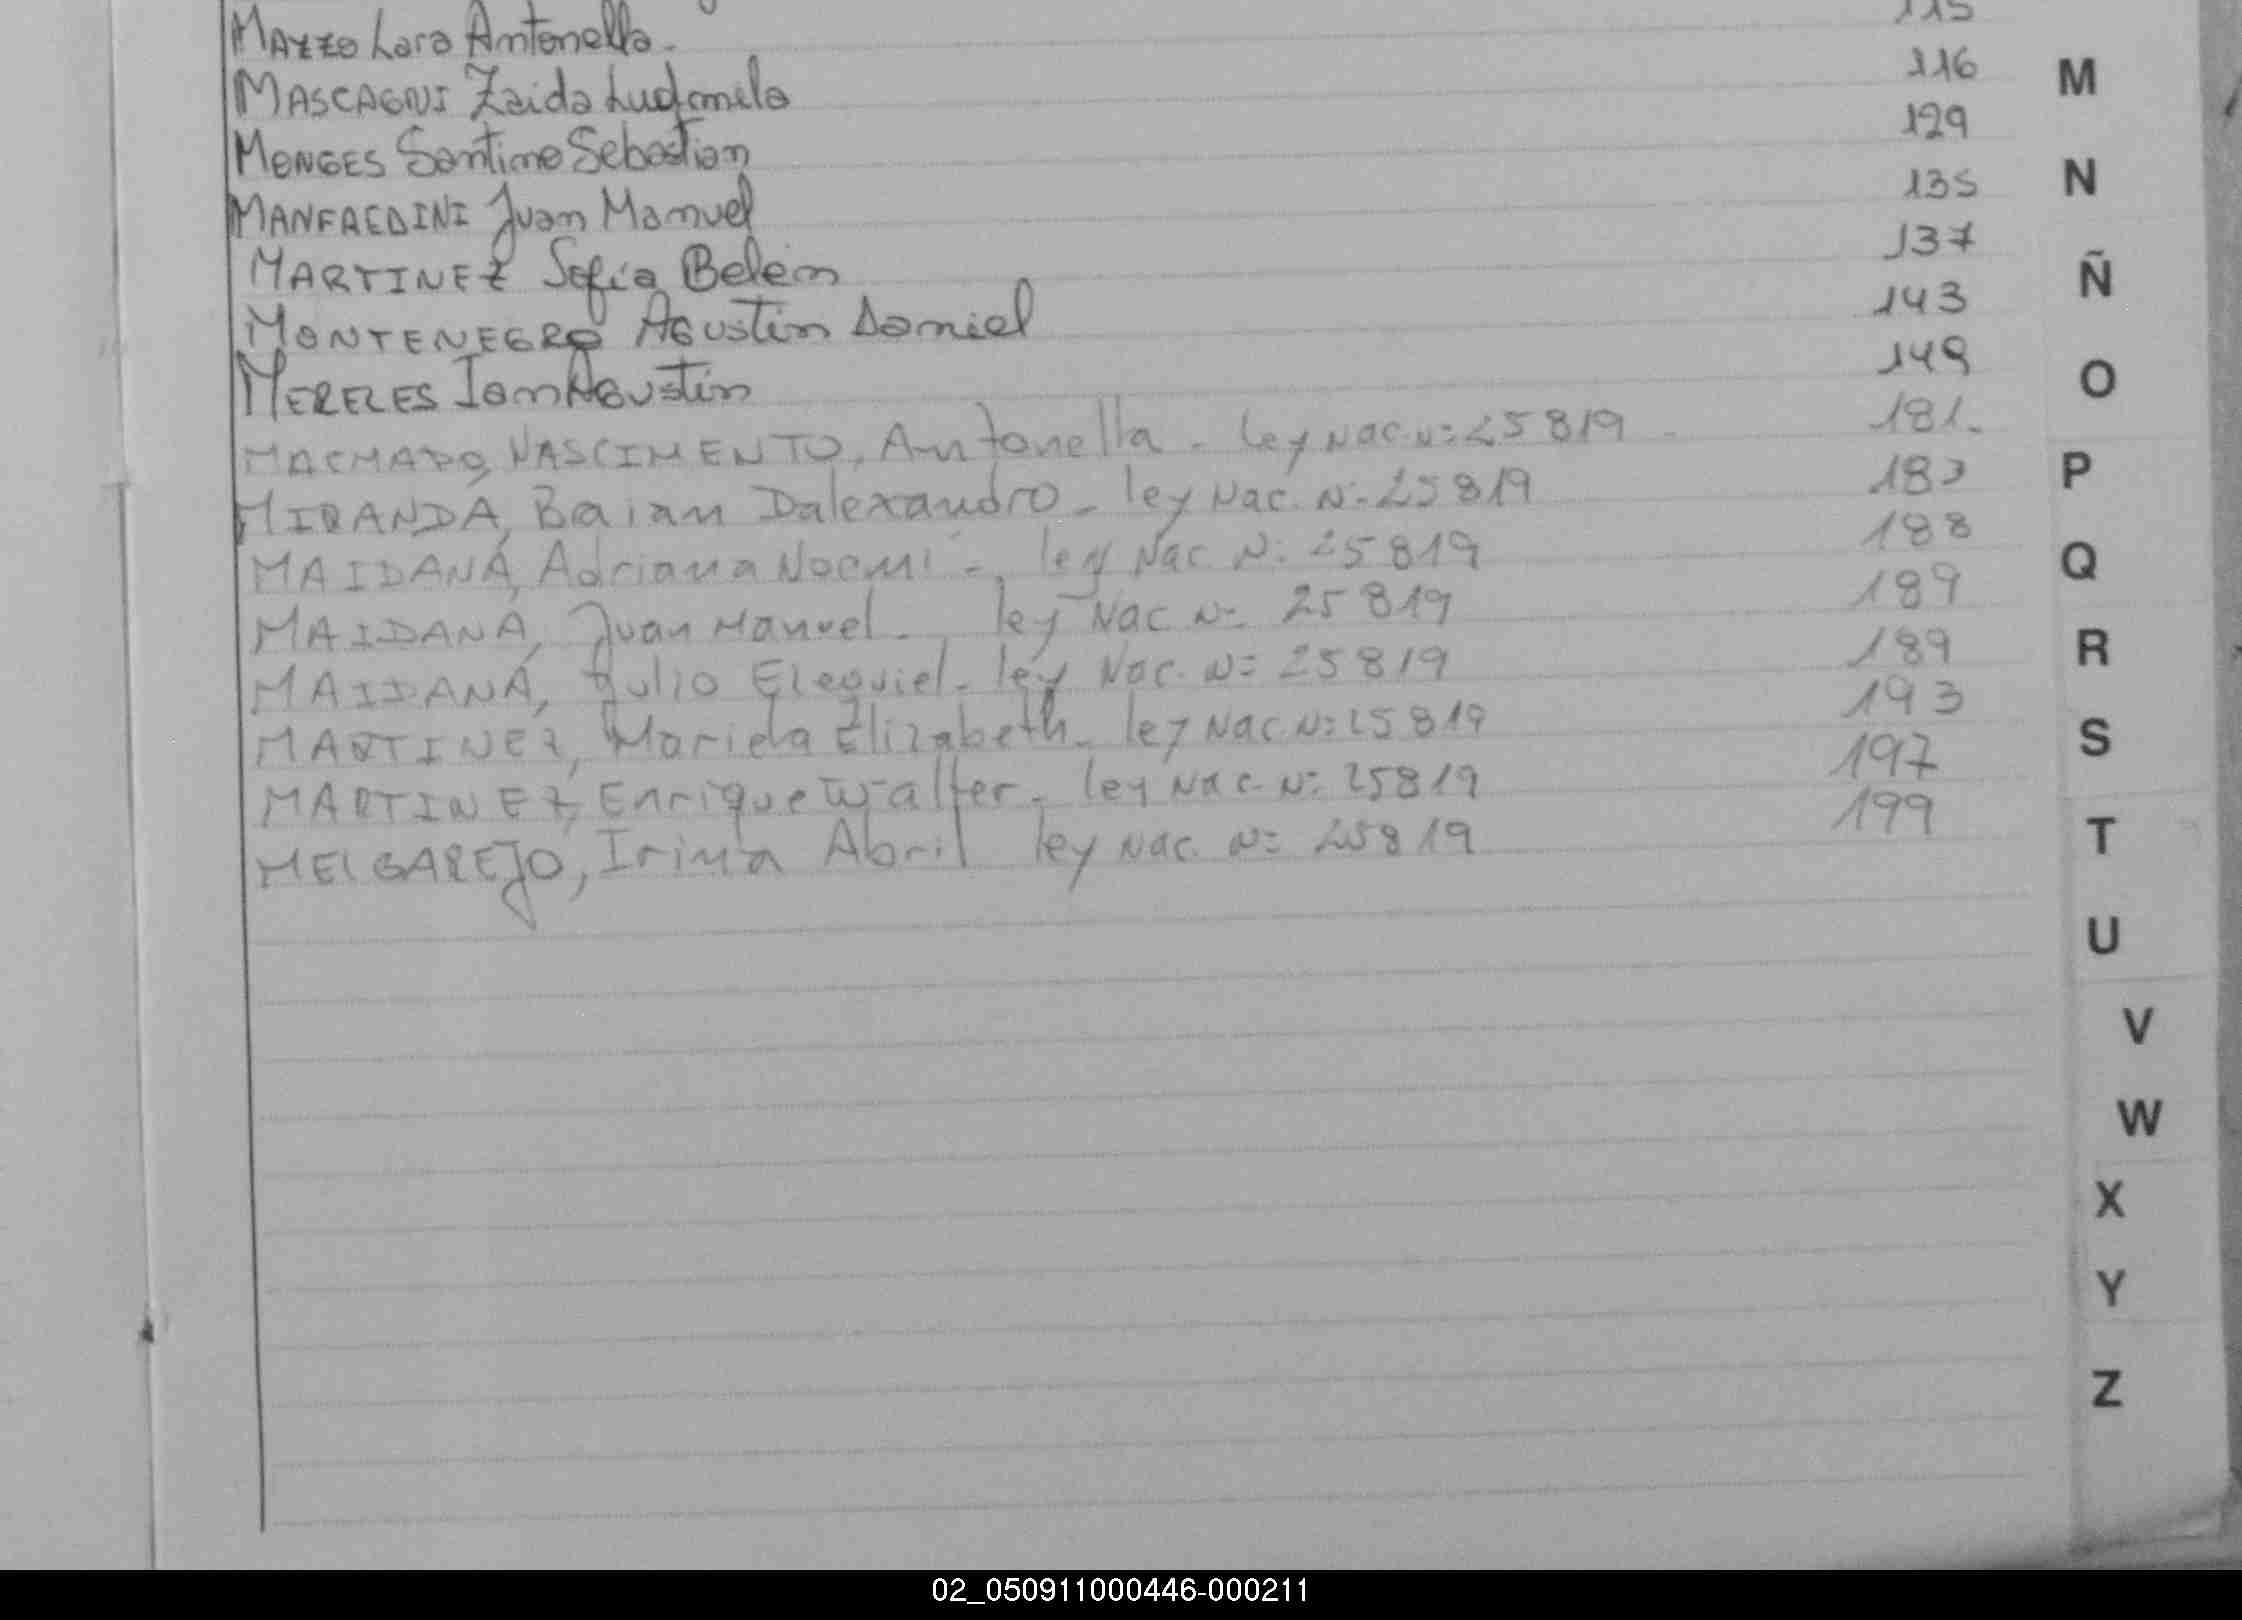 115
MAZZO Lara Antonella.
116
MASCAGNI Zaida Ludmila
129
MONGES Santino Sebastian
135
MANFREDINI Juan Manuel
137
MARTINEZ Sofía Belén
143
MONTENEGRO Agustín Daniel
149
MERELES Ian Agustín
MACHADO, NASCIMENTO, Antonella - Ley Nac. N: 25819 - 181.
MIRANDA, Brian Dalexandro - ley Nac. N: 25819 183
MAIDANA, Adriana Noemí - ley Nac. N: 25819 188
MAIDANA, Juan Manuel - ley Nac N: 25819 189
MAIDANA, Julio Ezequiel - ley Nac. N: 25819 189
MARTINEZ, Mariela Elizabeth - ley Nac. N: 25819 193
MARTINEZ, Enrique Walter - ley Nac. N: 25819 197
MELGAREJO, Irina Abril ley Nac. N: 25819 199
M
N
Ñ
O
P
Q
R
S
T
U
V
W
X
Y
Z
02_050911000446-000211